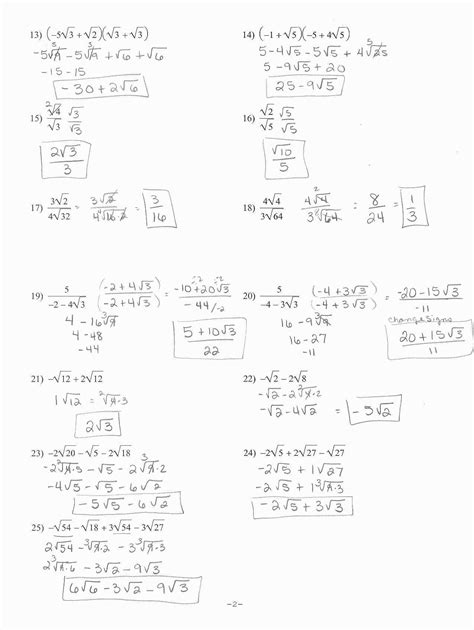 13) (-5√3 + √2)(√3 + √3)
-5√9 - 5√9 + √6 + √6
-15 - 15
-30 + 2√6
14) (-1 + √5)(-5 + 4√5)
5 - 4√5 - 5√5 + 4√25
5 - 9√5 + 20
25 - 9√5
15) √4/√3 √3/√3
2√3/3
16) √2/√5 √5/√5
√10/5
17) 3√2/4√32 = 3√2/4√16·2 = 3/16
18) 4√4/3√64 = 4√4/3√64 = 8/24 = 1/3
19) 5/(-2 - 4√3) (-2 + 4√3)/(-2 + 4√3) = (-10 + 20√3)/-44 /-2
4 - 16√9
4 - 48
-44
5 + 10√3/22
20) 5/(-4 - 3√3) (-4 + 3√3)/(-4 + 3√3) = -20 - 15√3/-11
16 - 9√9
16 - 27
-11
change signs
20 + 15√3/11
21) -√12 + 2√12
1√12 = √4·3
2√3
22) -√2 - 2√8
-√2 - 2√4·2
-√2 - 4√2 = -5√2
23) -2√20 - √5 - 2√18
-2√4·5 - √5 - 2√9·2
-4√5 - √5 - 6√2
-5√5 - 6√2
24) -2√5 + 2√27 - √27
-2√5 + 1√27
-2√5 + 1√9·3
-2√5 + 3√3
25) -√54 - √18 + 3√54 - 3√27
2√54 - √9·2 - 3√9·3
2√9·6 - 3√2 - 9√3
6√6 - 3√2 - 9√3
-2-